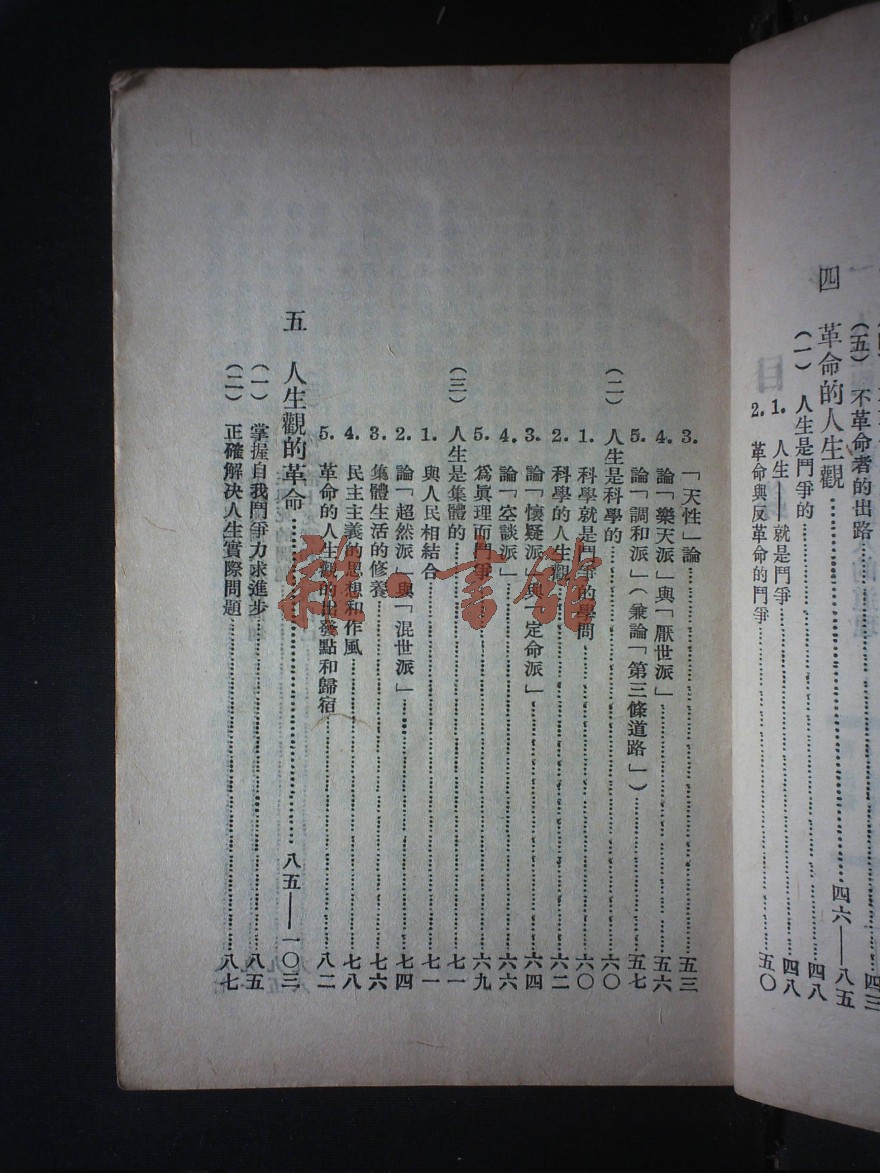 (五) 不革命者的出路……四三
四 革命的人生觀……四六——八五
(一) 人生是鬥爭的……四八
1. 人生——就是鬥爭……四八
2. 革命與反革命的鬥爭……五〇
3. 「天性」論……五三
4. 論「樂天派」與「厭世派」……五六
5. 論「調和派」(兼論「第三條道路」)……五七
(二) 人生是科學的……六〇
1. 科學就是鬥爭的學問……六〇
2. 科學的人生觀……六二
3. 論「懷疑派」與「定命派」……六四
4. 論「空談派」……六六
5. 爲眞理而鬥爭……六九
(三) 人生是集體的……七一
1. 與人民相結合……七一
2. 論「超然派」與「混世派」……七四
3. 集體生活的修養……七六
4. 民主主義的思想和作風……七八
5. 革命的人生觀的出發點和歸宿……八二
五 人生觀的革命……八五——一〇三
(一) 掌握自我鬥爭力求進步……八五
(二) 正確解決人生實際問題……八七
目
書館